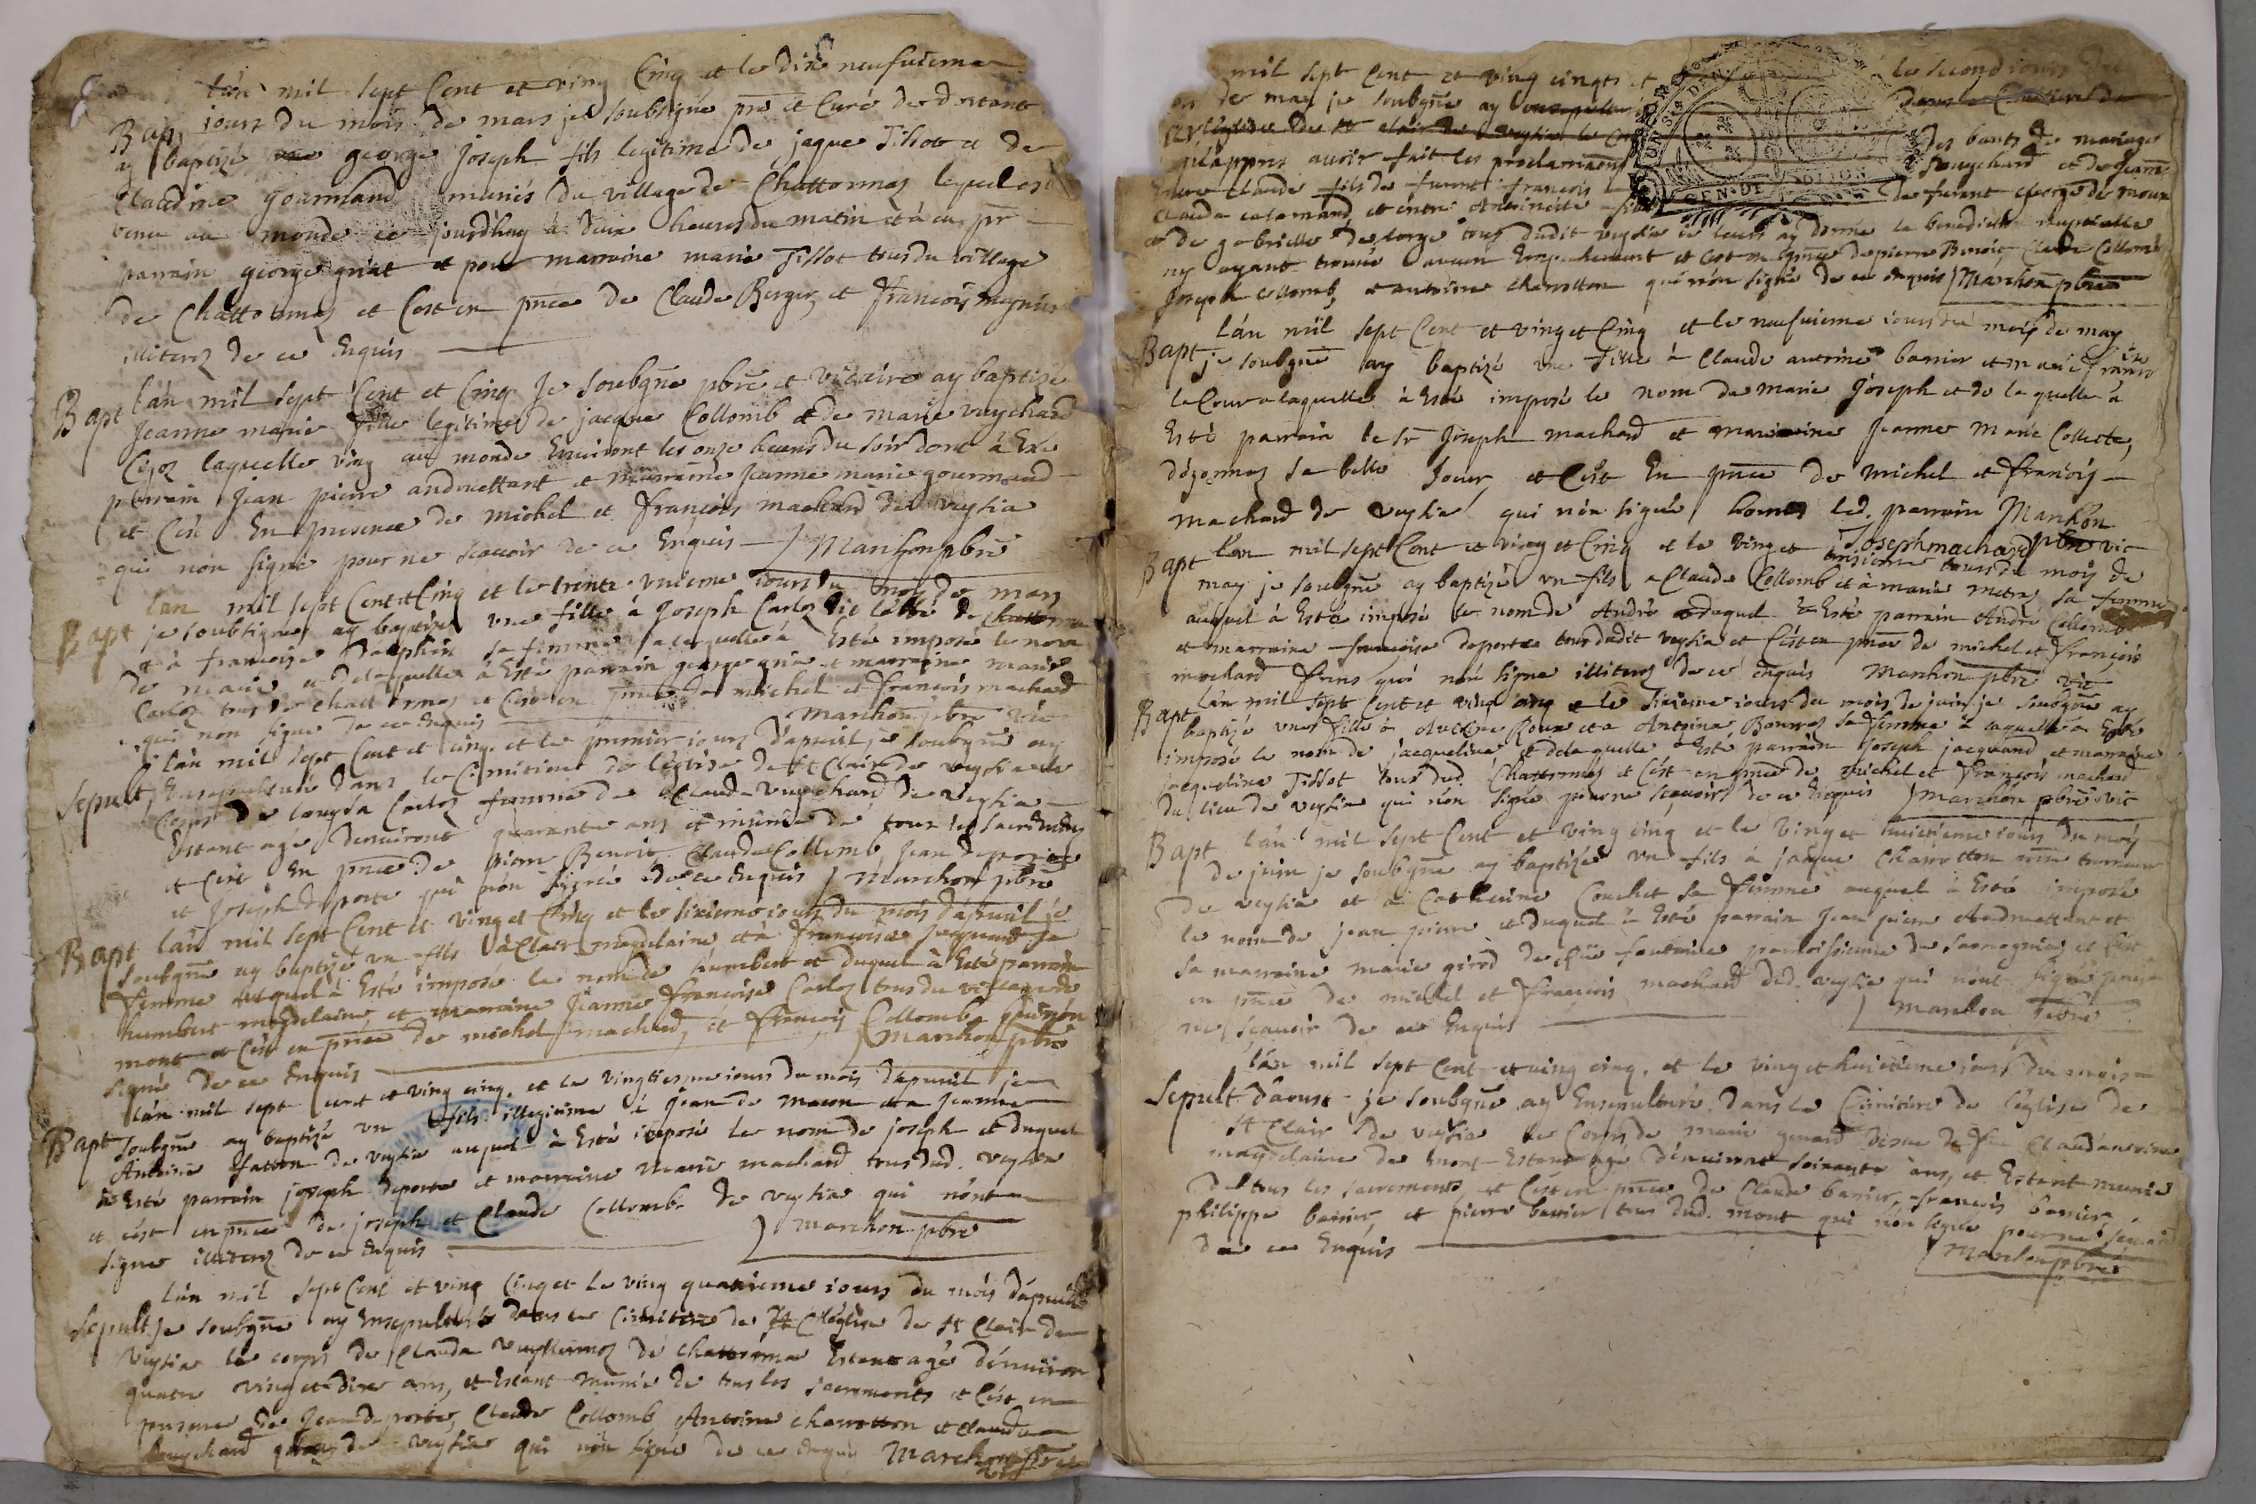 lán mil sept Cent et ving Cinq et le dix neufuieme
Bap jours du mois de mars je soubsigné pre et Curé de dortant
ay baptizé george Joseph fils legitime de jaque Tissot et de
Claudine gourmand mariés du village de Chattonnaz lequel est
venu au monde ce jourdhuy à deux heures du matin et à eu pr
parrain george griat et pour marraine marie Tissot tous du village
de Chattonnaz et Cest en pnce de Claude Berger et François
illiterez de ce Enquis
Bapt lán mil sept Cent et Cinq Je soubgne pbre et vicaire ay baptizé
Jeanne marie fille legitime de jacque Collomb et de marie vuychard
laquelle ving au monde Environt les onze heures du soir dont à Esté
parrain Jean pierre andruettant et marraine Jeanne marie gourmand
et Cest En presence de michel et François machard de veysia
qui nón signé pour ne scavoir de ce Enquis Marchon pbre
lán mil sept Cent et Cinq et le trente vnieme jours du moy de mars
Bapt je soubsigné ay baptizé vne fille à Joseph Carloz dit labbé de Chattonna
et à françoise Dauphin sa femme a laquelle à Esté imposé le nom
de marie et delaquelle à Esté parrain george gria et marraine marie
Carloz tous de Chattonnaz et Cest en pnce de michel et françois machard
qui non signe de ce Enquis Marchon pbre vic
lán mil sept Cent et cinq et le premier jours dapvril je soubgne ay
Sepult Ensepulturé dans le Cimitiere de léglise de St Clair de veysia le
Corps de Carloz femme de Claude vuychard de veysia
Estant agé denviront quarante ans et munie de tous les sacrements
et Cest En pnce de pierre Benoit Claude Collomb, Jean deporte
et Joseph deporte qui nón signé de ce Enquis Marchon pbre
Bapt lán mil sept Cent et ving et Cinq et le sixieme jours du mois dapvril je
soubgne ay baptizé vn fils à Clair magdelaine et à françoise jaquand sa
femme auquel à Esté imposé le nom de humbert et duquel à Esté parrain
humbert magdelaine et marraine Jeanne Françoise Carloz tous du village de
mont et Cest en pnce de michel machard et François Collomb qui nón
signé de ce Enquis Marchon pbre
lán mil sept cent et ving cinq et le vingtiesme jours du mois dapvril je
Bapt soubgne ay baptizé vn fils illegitime à Jean de macon et a Jeanne
Antoine fatton de veysia auquel à Esté imposé le nom de joseph et duquel
à Esté parrain joseph deporte et marraine marie machard tous dud. veysia
et cést en pnce de joseph et Claude Collomb de veysia qui nónt
signe illiterez de ce Enquis Marchon pbre
lán mil sept Cent et ving Cinq et le ving quatrieme jours du móis dápvril
Sepult je soubgne ay Ensepulturé dans le Cimitiere de léglise de St Clair de
veysia le corps de Claude de Chattonna Estant agé dénviron
quatre ving et dix ans, et Estant munie de tous les sacrements et Cést en
presence de Jean deporte, Claude Collomb Antoine charotton et Claude
vuychard de veysia qui nón signé de ce Enquis Marchon pbre
mil sept Cent et ving cinq et le second jours de
de may je soubgne ay
St Clair de veysia
jé apprès auoir fait les proclamaons des bants de mariage
Entre Claude fils de funt françois vuychard et de Jeanne
Claude et entre Antoinette fille de furant george de moux
et de gabrielle de lorge tous dudit veysia je leurs ay donné la benediction nuptialle
ny ayant trouué aucun Empechement et Cest en pnce de pierre Benoit, Claude Collomb
Joseph Collomb et antoine charotton qui nón signé de ce Enquis Marchon pbre
lán mil sept Cent et ving et Cinq et le neufuieme jours du moiy de may
Bapt je soubgne ay baptizé vne fille à Claude antoine barrier et marie
la Cour a laquelle à Esté imposé le nom de marie Joseph et de la quelle à
Esté parrain le Sr Joseph machard et marraine Jeanne Marie Collecte,
sa belle Soeur, et Cést En pnce de michel et François
machard de veysia qui nón signé hormis led. parrain Marchon
Joseph machard pbre vic
Bapt lán mil sept Cent et ving et Cinq et le ving et troisieme jours du moiy de
may je soubgne ay baptizé vn fils a Claude Collomb et à marie metraz sa femme
auquel à Esté imposé le nom de André et duquel à Esté parrain André Collomb
et marraine françoise deporte tous dudit veysia et Cést en pnce de michel et François
machard freres qui nón signe illiterez de ce enquis Marchon pbre vic
Bapt lán mil sept Cent et ving cinq et le sixieme jours du mois de juin je soubgne ay
baptizé vne fille à Roux et a Antoina sa femme à laquelle à Esté
imposé le nom de jacqueline et dela quelle à Esté parrain Joseph jacquand et marraine
jacqueline Tissot tous dud. Chattonnaz et Cést en pnce de michel et françois machard
du lieu de veysia qui nón signé pour ne scavoir de ce Enquis Marchon pbre vic
Bapt lán mil sept Cent et ving cinq et le ving et huictieme jours du moiy
de juin je soubgne ay baptizé vn fils à jaque Charotton
de veysia et à Catherine Couchet sa femme auquel à Esté imposé
le nom de jean pierre et duquel à Esté parrain Jean pierre Andruettant et
sa marraine marie girod de fontaine paroissienne de et Cést
en pnce de michel et François machard dud. veysia qui nont signé pour
ne scauoir de ce Enquis Marchon pbre
lán mil sept Cent et ving cinq, et le ving et huictieme jours du mois
Sepult dáoust je soubgne ay Ensepulturé dans le Cimitiere de léglise de
St Clair de veysia le Corps de marie de Claudantoine
magdelaine de mont Estant age dénviront soixante ans, et Estant munie
de tous les sacrements, et Cest en pnce de Claude barrier, françois barrier
philippe barrier, et pierre barrier tous dud. mont qui nón signé pour ne scauoir
de ce Enquis Marchon pbre